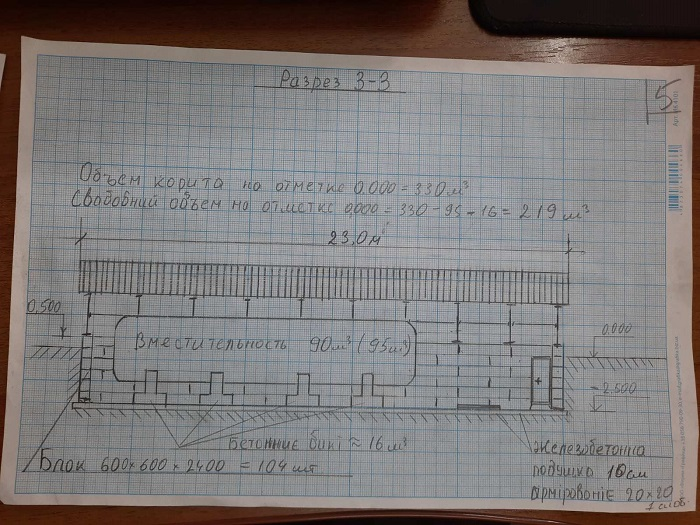 Разрез 3-3
5
Объем корита на отметке 0,000 = 330 м³
Свободний объем на отметке 0,000 = 330 - 95 - 16 = 219 м³
23,0м
0,500
Вместительность 90м³ (95м³)
0,000
-2,500
Бетонние бикі ≈ 16 м³
Блок 600×600×2400 = 104 шт
Железобетонна
подушка 10см
арміровоніє 20×20